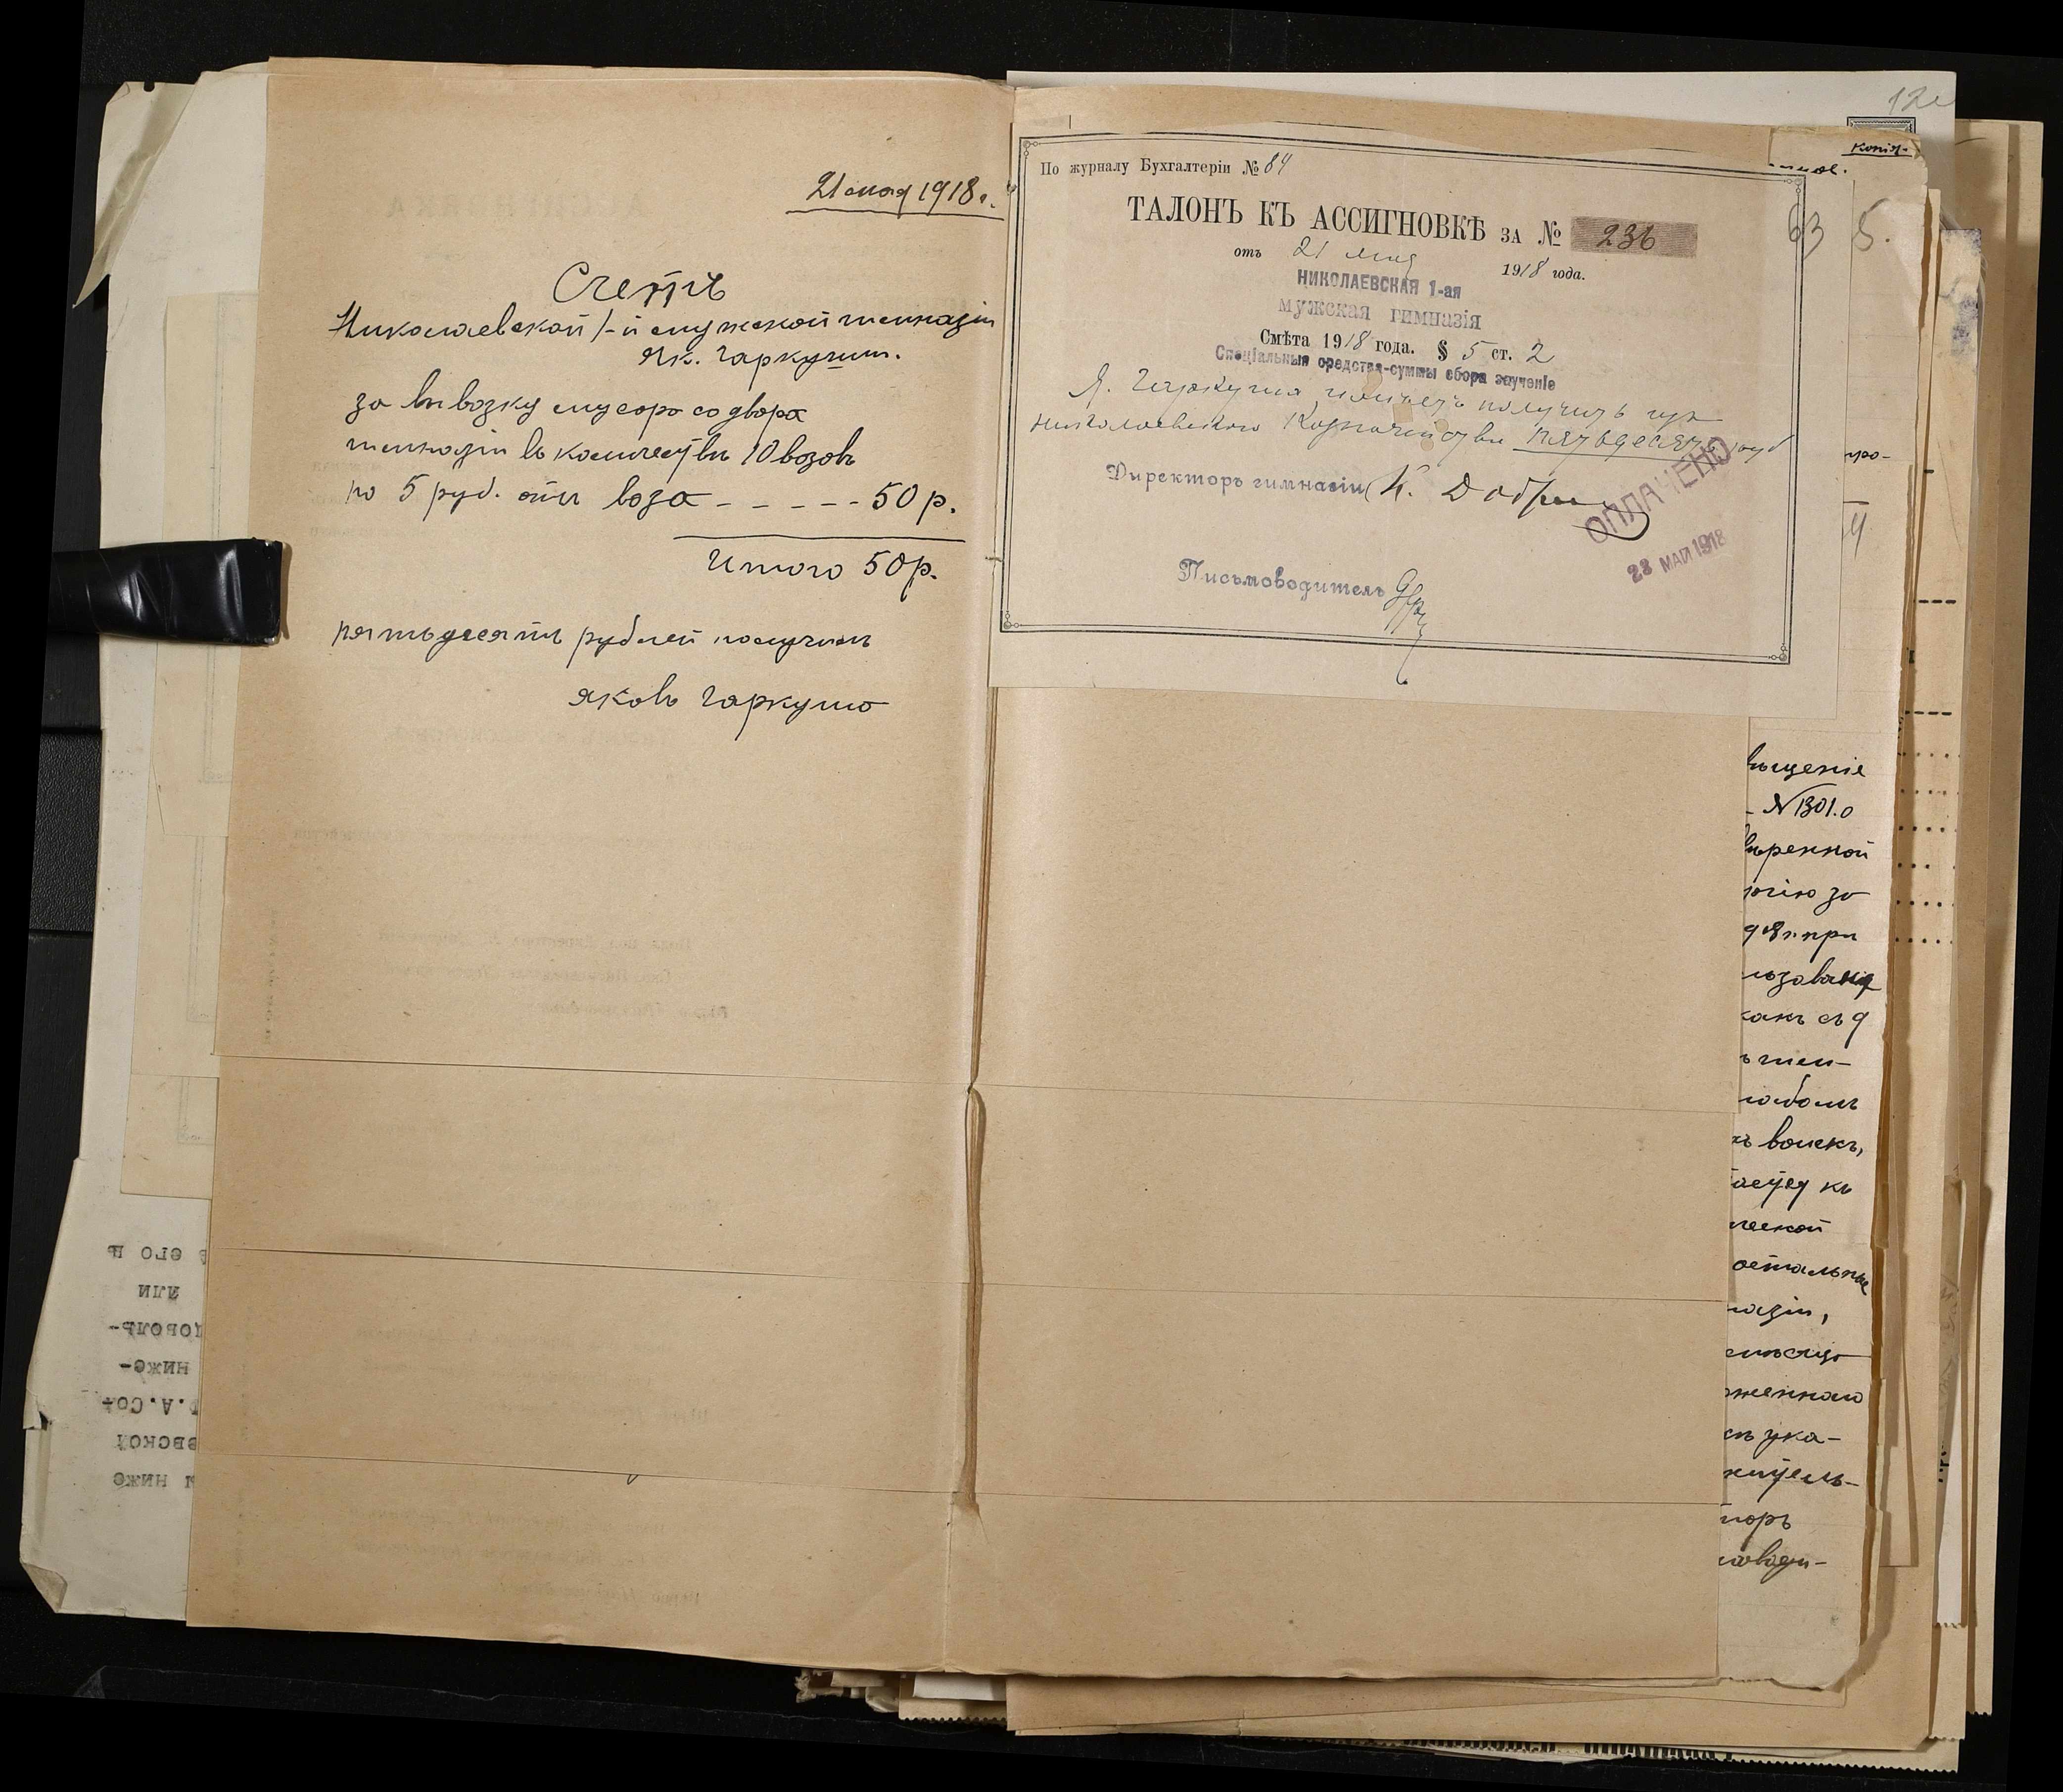 21 мая 1918 г.
Счетъ
Николаевской 1-й мужской гимназіи
Як. Гаркуши.
за вывозку мусора со двора
гимназіи въ количествѣ 10 возовъ
по 5 руб. отъ воза - - - - - 50 р.
Итого 50 р.
пятьдесятъ рублей получилъ
Яковъ Гаркуша
По журналу Бухгалтеріи № 84
ТАЛОНЪ КЪ АССИГНОВКѢ ЗА № 236
отъ 21 мая 1918 года.
НИКОЛАЕВСКАЯ 1-ая
мужская гимназія
Смѣта 1918 года. § 5 ст. 2
Спеціальныя средства-суммы сбора за ученіе
Я. Гаркуша имѣетъ получить изъ
Николаевскаго Казначейства пятьдесятъ руб
Директоръ гимназіи К.
ОПЛАЧЕНО
28 МАЙ 1918
Письмоводитель
63
5.
Копія
про-
4
№ 1301.о
ренной
за
при
какъ съ
войскъ,
къ
остальные
назіи,
женнаго
ука-
его в
или
доволь-
ниже-
.А.Со-
евской
ниже